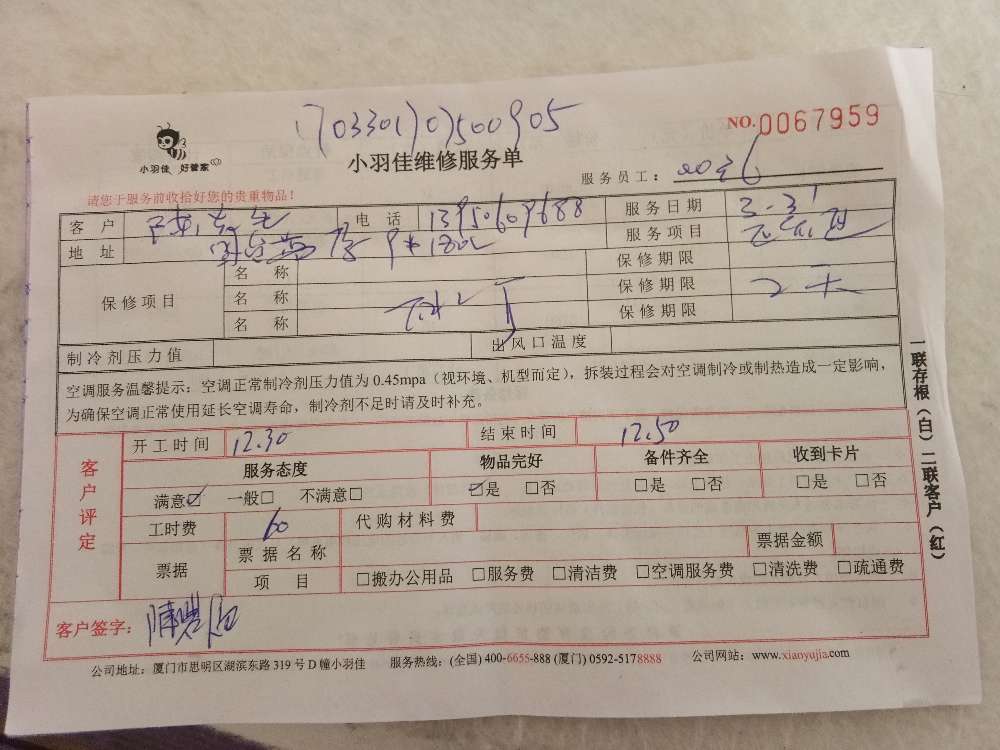 170330107500905
NO.0067959
小羽佳 好管家
小羽佳维修服务单
服务员工：
请您于服务前收拾好您的贵重物品！
客 户 电 话 13950609688 服务日期 3.31
地 址 服务项目
保修项目
名 称 保修期限
名 称 保修期限
名 称 保修期限
制冷剂压力值 出风口温度
空调服务温馨提示：空调正常制冷剂压力值为 0.45mpa（视环境、机型而定），拆装过程会对空调制冷或制热造成一定影响，
为确保空调正常使用延长空调寿命，制冷剂不足时请及时补充。
客户评定
开工时间 12.30 结束时间 12.50
服务态度 物品完好 备件齐全 收到卡片
满意☑ 一般□ 不满意□ ☑是 □否 □是 □否 □是 □否
工时费 60 代购材料费
票据 票据名称 票据金额
项 目 □搬办公用品 □服务费 □清洁费 □空调服务费 □清洗费 □疏通费
客户签字：
公司地址：厦门市思明区湖滨东路 319 号 D 幢小羽佳 服务热线：(全国) 400-6655-888 (厦门) 0592-5178888 公司网站：www.xiaoyujia.com
一联存根（白）二联客户（红）